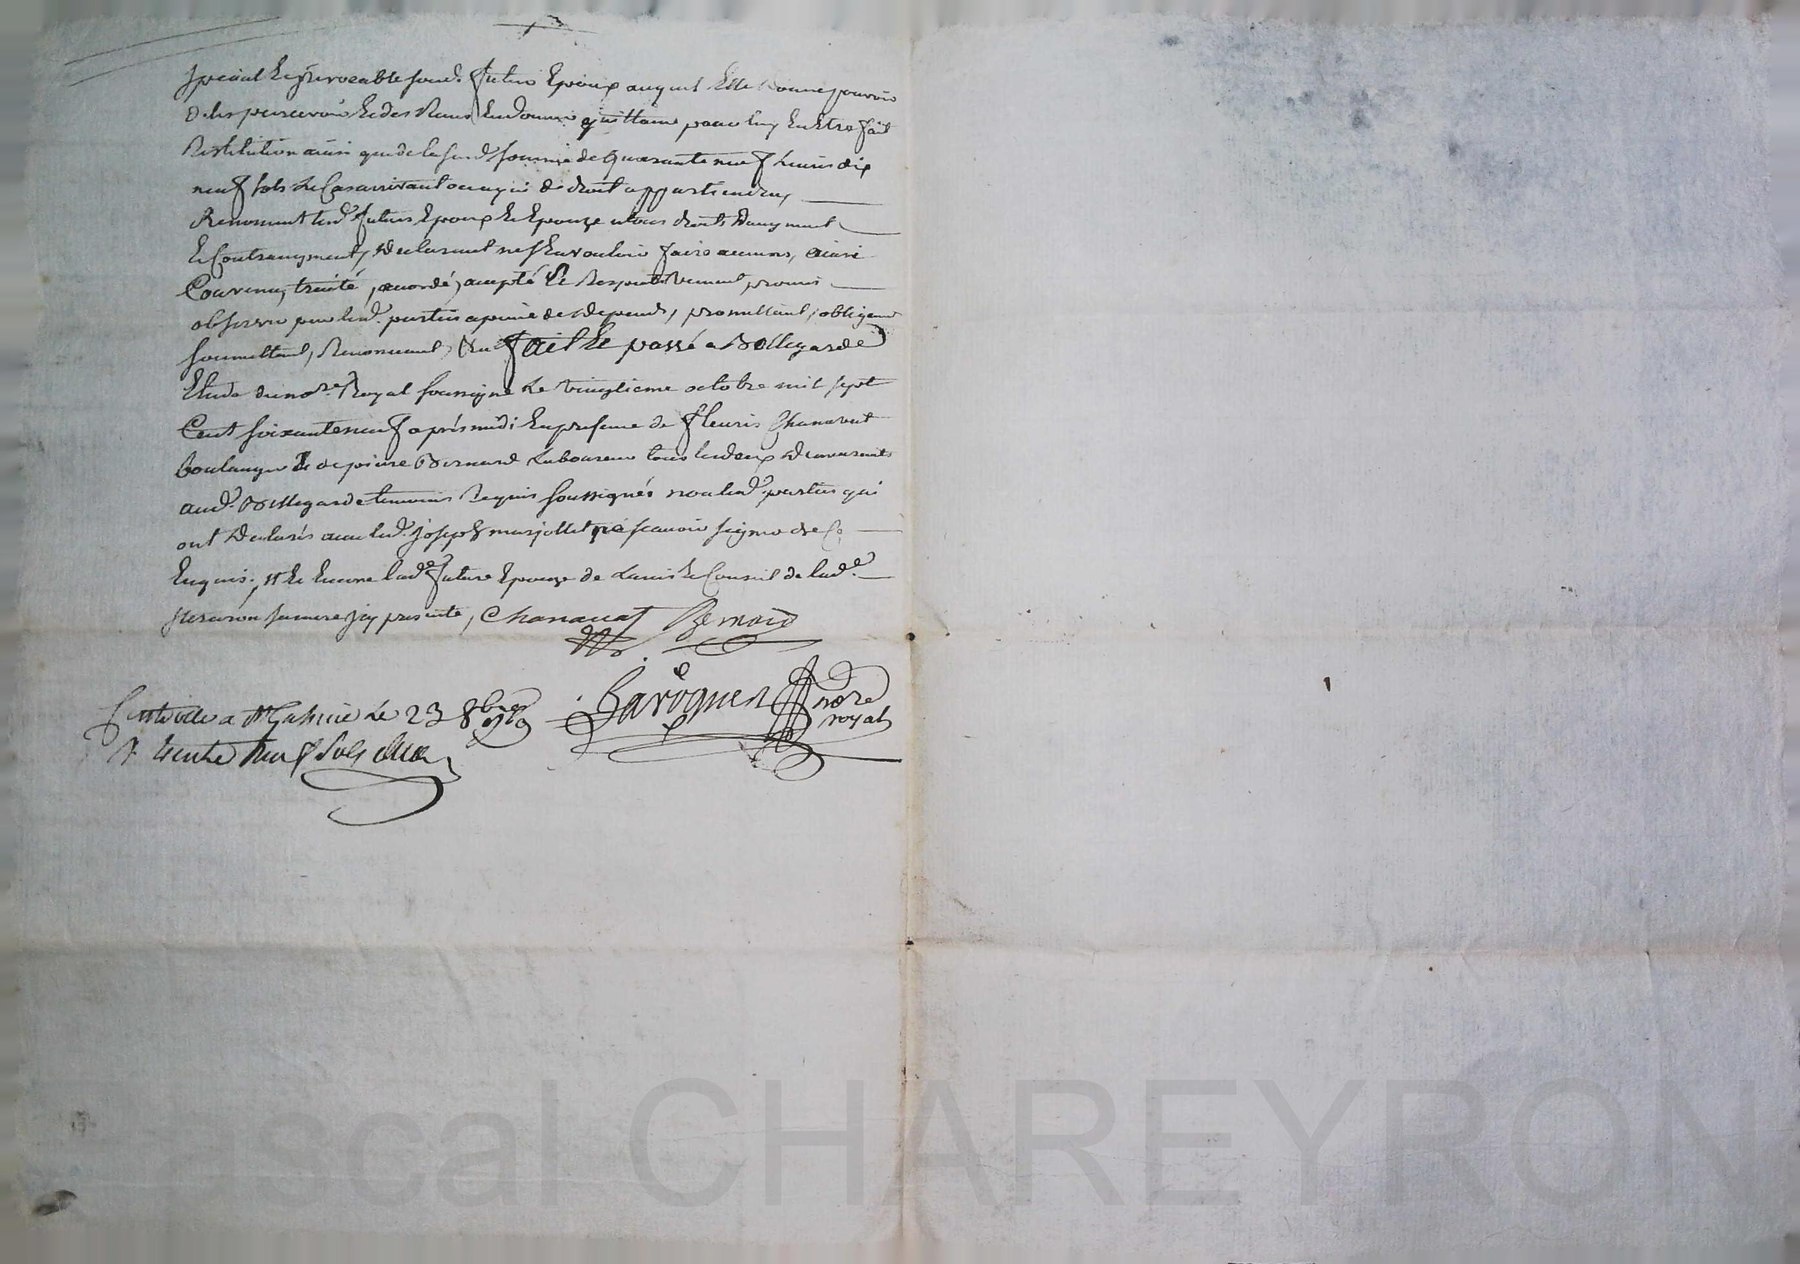 special & irrevocable sond. futur Epoux auquel Elle donne pouvoir
de les percevoir & des Reçus En donner quittance pour luy En Etre fait
Restitution ainsi que de la susd. somme de quarante neuf Livres dix
neuf sols Le Cas arrivant ou a qui de droit appartiendra,
Renonceant lesd. futurs Epoux & Epouze a tous droits d'augment
& Contraugment, declarant n'en vouloir faire aucuns, ainsi
Convenu, traité, acordé, accepté & Respectivement promis
observer par lesd. parties a peine de depends, promettant, obligeant
soumettant, Renonceant, &a fait & passé a Bellegarde
Etude du no.re Royal soussigné Le vingtieme octobre mil sept
Cent soixante neuf après midi En presence de fleuris Chanavat
boulanger & de pierre Bernard Laboureur tous les deux demeurants
aud. Bellegarde temoins Requis soussignés non lesd. parties qui
ont declarés avec led. joseph marjollet ne sçavoir signer de Ce
Enquis, & Encore lad.e future Epouze de L'avis & Conseil de lad.e
sa mere icy presente, Chanavat Bernard
Baroguer no.re
royal
Controlle a St Galmier Le 23 8bre 1769
R trente neuf sols
Pascal CHAREYRON